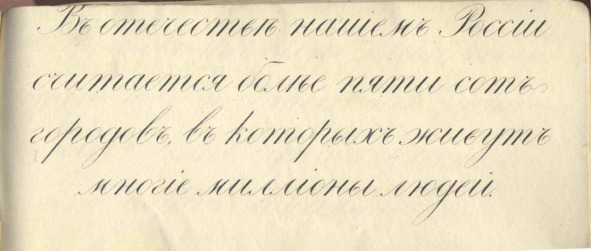 Въ отечествѣ нашіемъ Россіи
считается болѣе пяти сотъ
городовъ, въ которыхъ живутъ
многіе милліоны людей.